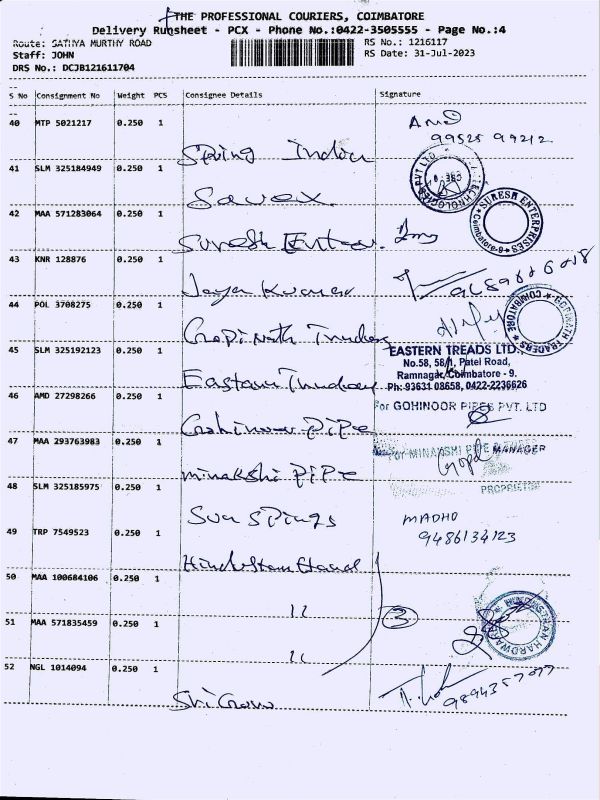 THE PROFESSIONAL COURIERS, COIMBATORE
Delivery Runsheet - PCX - Phone No.:0422-3505555 - Page No.:4
Route: SATHYA MURTHY ROAD RS No.: 1216117
Staff: JOHN RS Date: 31-Jul-2023
DRS No.: DCJB121611704
S No Consignment No Weight PCS Consignee Details Signature
40 MTP 5021217 0.250 1
99525 99212
Spring India
41 SLM 325184949 0.250 1
TECHNOLOGIES PVT LTD
Savex
42 MAA 571283064 0.250 1
SURESH ENTERPRISES Coimbatore-9
Suresh Enter.
43 KNR 128876 0.250 1
Jaya Kumar
44 POL 3708275 0.250 1
GOPINATH TRADERS COIMBATORE
Gopinath Traders
45 SLM 325192123 0.250 1
EASTERN TREADS LTD.
No.58, 58/1, Patel Road,
Ramnagar, Coimbatore - 9.
Ph: 93631 08658, 0422-2236626
Eastern
46 AMD 27298266 0.250 1
For GOHINOOR PIPES PVT. LTD
Gohinoor Pipe
47 MAA 293763983 0.250 1
For MINAKSHI PIPE
MANAGER
minakshi PiPe
48 SLM 325185975 0.250 1
PROPRIETOR
Sun Spings
MADHO
9486134123
49 TRP 7549523 0.250 1
Hindustan Hand
50 MAA 100684106 0.250 1
11
3
51 MAA 571835459 0.250 1
HINDUSTHAN HARDWARE
11
52 NGL 1014094 0.250 1
9894357077
Sri